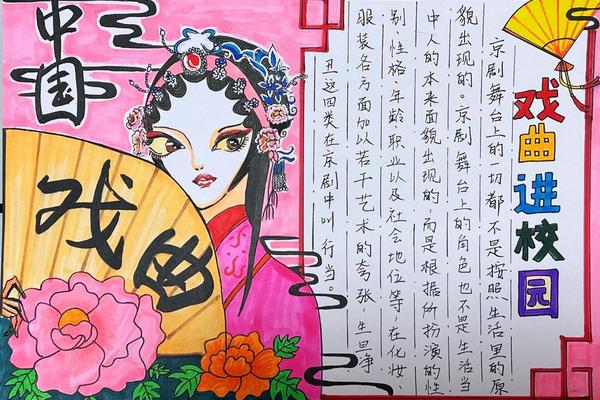 中国
戏曲
戏曲进校园
京剧舞台上的一切都不是按照生活里的原
貌出现的。京剧舞台上的角色也不是生活当
中人的本来面貌出现的,而是根据所扮演的性
别、性格、年龄、职业以及社会地位等,在化妆、
服装各方面加以若干艺术的夸张,生旦净
丑这四类在京剧中叫行当。